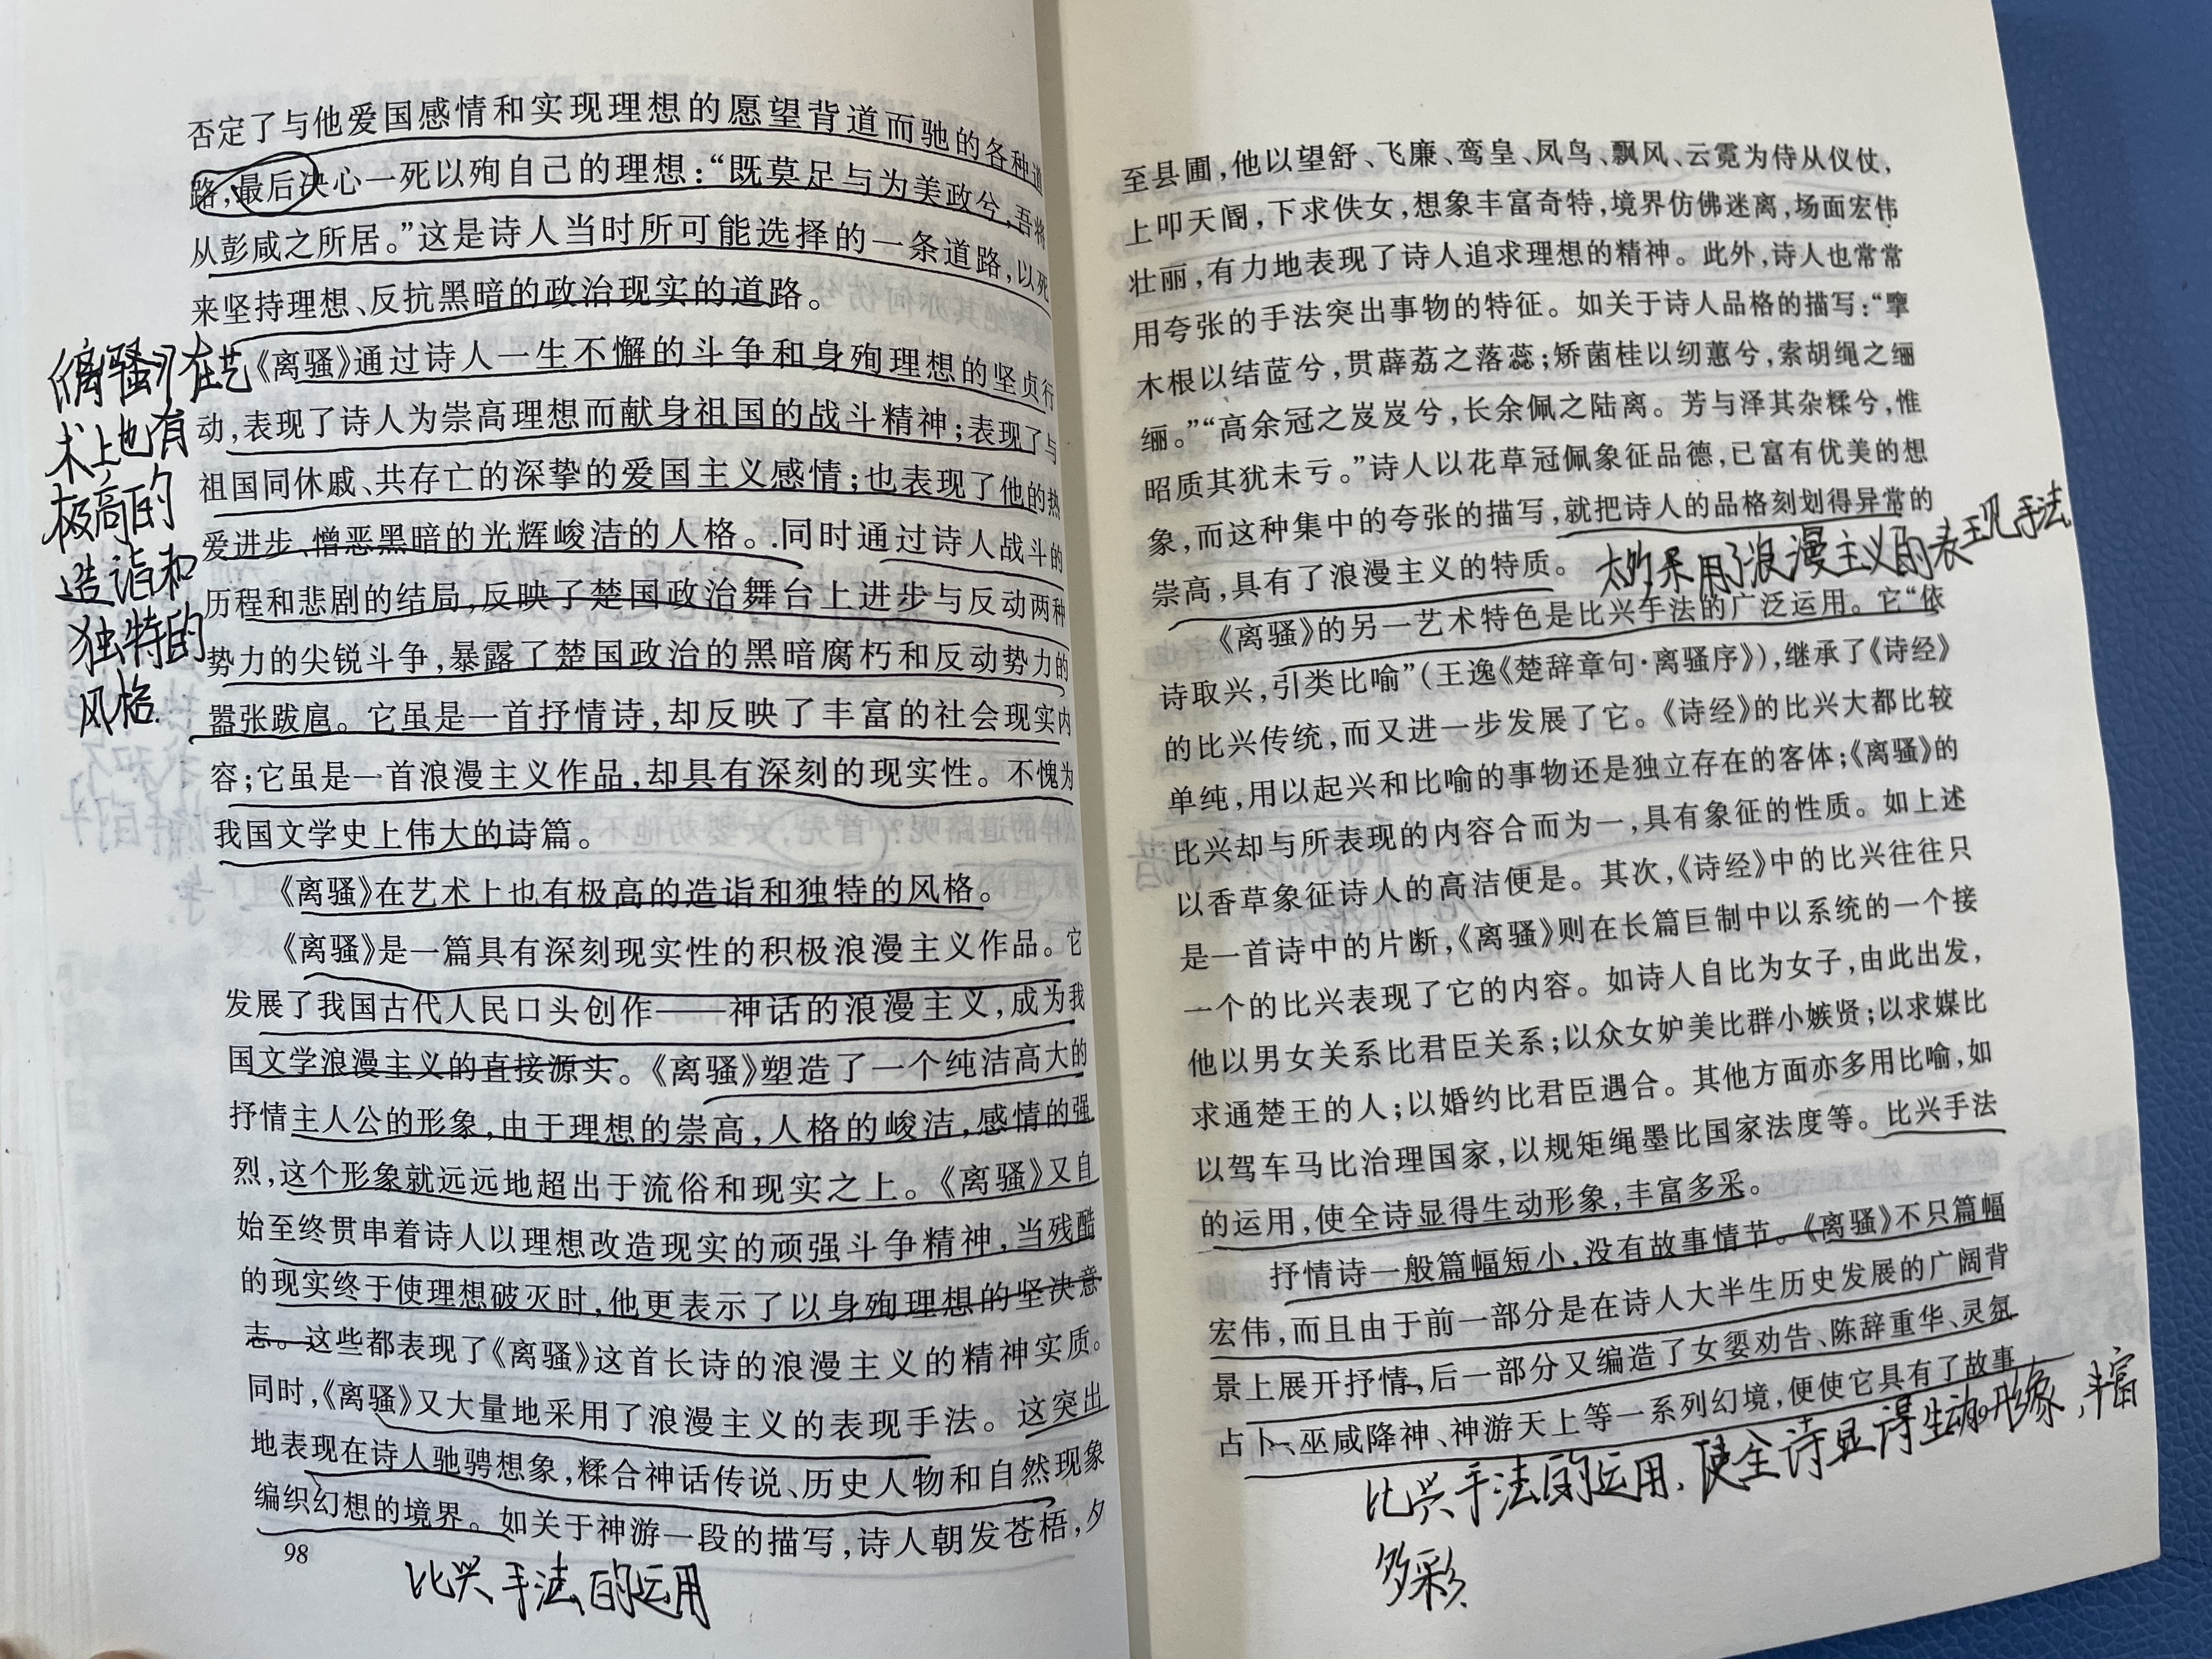 否定了与他爱国感情和实现理想的愿望背道而驰的各种道
路，最后决心一死以殉自己的理想：“既莫足与为美政兮，吾将
从彭咸之所居。”这是诗人当时所可能选择的一条道路，以死
来坚持理想、反抗黑暗的政治现实的道路。
《离骚》通过诗人一生不懈的斗争和身殉理想的坚贞行
动，表现了诗人为崇高理想而献身祖国的战斗精神；表现了与
祖国同休戚、共存亡的深挚的爱国主义感情；也表现了他的热
爱进步、憎恶黑暗的光辉峻洁的人格。同时通过诗人战斗的
历程和悲剧的结局，反映了楚国政治舞台上进步与反动两种
势力的尖锐斗争，暴露了楚国政治的黑暗腐朽和反动势力的
嚣张跋扈。它虽是一首抒情诗，却反映了丰富的社会现实内
容；它虽是一首浪漫主义作品，却具有深刻的现实性。不愧为
我国文学史上伟大的诗篇。
《离骚》在艺术上也有极高的造诣和独特的风格。
《离骚》是一篇具有深刻现实性的积极浪漫主义作品。它
发展了我国古代人民口头创作——神话的浪漫主义，成为我
国文学浪漫主义的直接源头。《离骚》塑造了一个纯洁高大的
抒情主人公的形象，由于理想的崇高，人格的峻洁，感情的强
烈，这个形象就远远地超出于流俗和现实之上。《离骚》又自
始至终贯串着诗人以理想改造现实的顽强斗争精神，当残酷
的现实终于使理想破灭时，他更表示了以身殉理想的坚决意
志。这些都表现了《离骚》这首长诗的浪漫主义的精神实质。
同时，《离骚》又大量地采用了浪漫主义的表现手法。这突出
地表现在诗人驰骋想象，糅合神话传说、历史人物和自然现象
编织幻想的境界。如关于神游一段的描写，诗人朝发苍梧，夕
98
《离骚》在艺
术上也有
极高的
造诣和
独特的
风格.
比兴手法的运用
至县圃，他以望舒、飞廉、鸾皇、凤鸟、飘风、云霓为侍从仪仗，
上叩天阍，下求佚女，想象丰富奇特，境界仿佛迷离，场面宏伟
壮丽，有力地表现了诗人追求理想的精神。此外，诗人也常常
用夸张的手法突出事物的特征。如关于诗人品格的描写：“擥
木根以结茝兮，贯薜荔之落蕊；矫菌桂以纫蕙兮，索胡绳之纚
纚。”“高余冠之岌岌兮，长余佩之陆离。芳与泽其杂糅兮，惟
昭质其犹未亏。”诗人以花草冠佩象征品德，已富有优美的想
象，而这种集中的夸张的描写，就把诗人的品格刻划得异常的
崇高，具有了浪漫主义的特质。
采用了浪漫主义的表现手法
《离骚》的另一艺术特色是比兴手法的广泛运用。它“依
诗取兴，引类比喻”（王逸《楚辞章句·离骚序》），继承了《诗经》
的比兴传统，而又进一步发展了它。《诗经》的比兴大都比较
单纯，用以起兴和比喻的事物还是独立存在的客体；《离骚》的
比兴却与所表现的内容合而为一，具有象征的性质。如上述
以香草象征诗人的高洁便是。其次，《诗经》中的比兴往往只
是一首诗中的片断，《离骚》则在长篇巨制中以系统的一个接
一个的比兴表现了它的内容。如诗人自比为女子，由此出发，
他以男女关系比君臣关系；以众女妒美比群小嫉贤；以求媒比
求通楚王的人；以婚约比君臣遇合。其他方面亦多用比喻，如
以驾车马比治理国家，以规矩绳墨比国家法度等。比兴手法
的运用，使全诗显得生动形象，丰富多采。
抒情诗一般篇幅短小，没有故事情节。《离骚》不只篇幅
宏伟，而且由于前一部分是在诗人大半生历史发展的广阔背
景上展开抒情，后一部分又编造了女媭劝告、陈辞重华、灵氛
占卜、巫咸降神、神游天上等一系列幻境，便使它具有了故事
比兴手法的运用，使全诗显得生动形象，丰富
多彩.